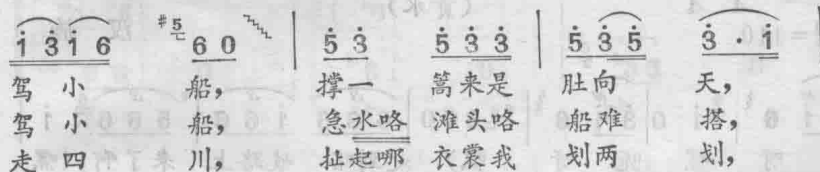 i 3 i 6 #5 6 0 | 5 3 5 3 3 | 5 3 5 3 · i |
驾 小 船, 撑一 篙来是 肚向 天,
驾 小 船, 急水咯 滩头咯 船难 搭,
走 四 川, 扯起哪 衣裳我 划两 划,